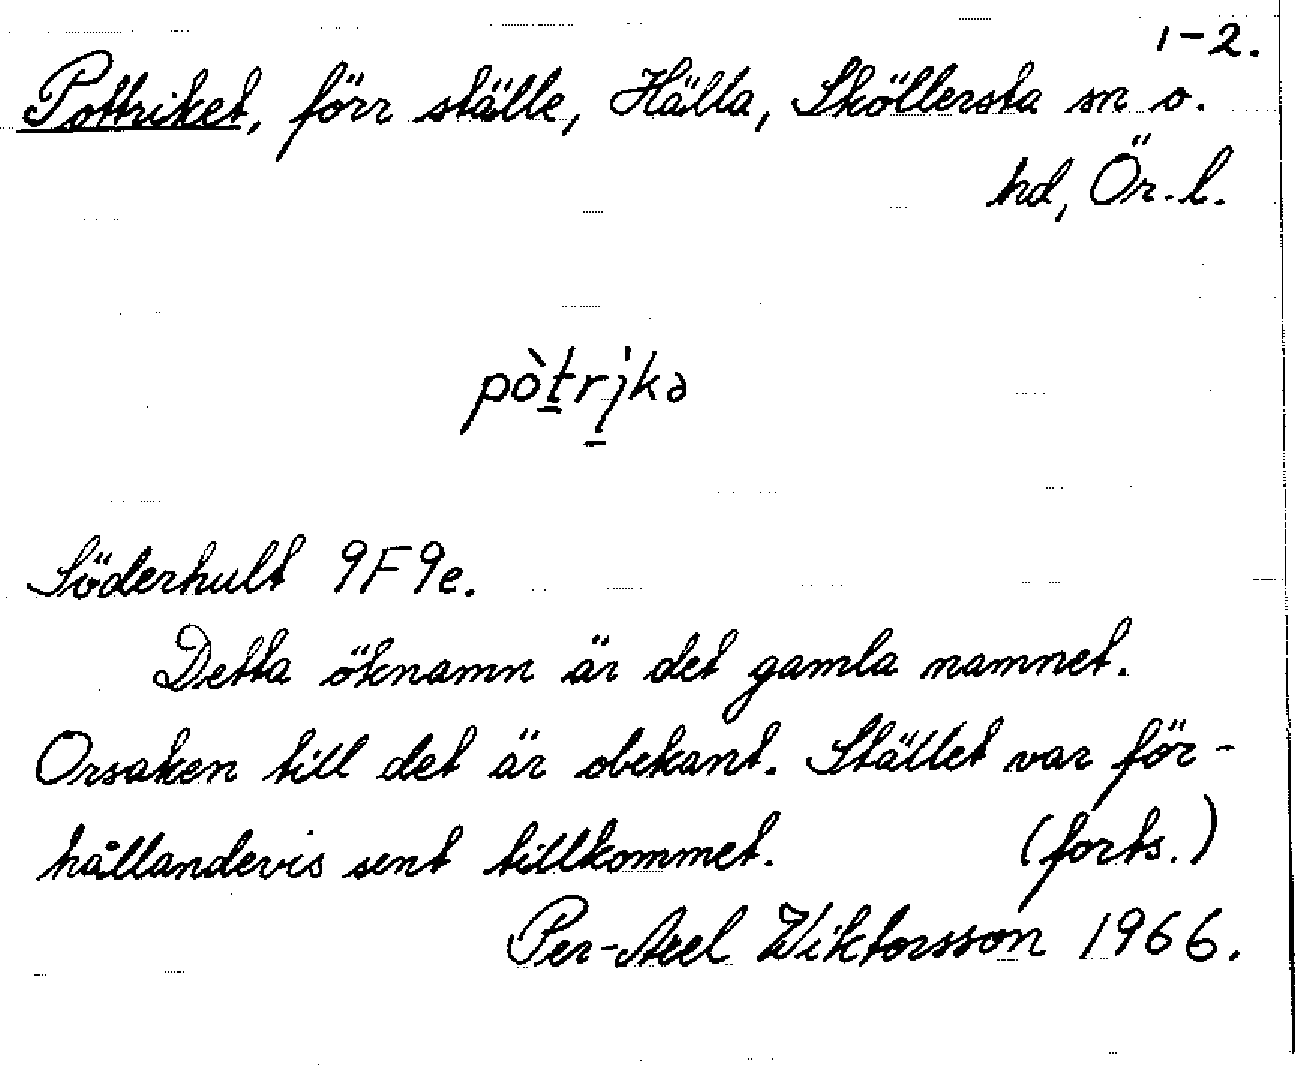 1-2.
Pottriket, förr ställe, Hälla, Sköllersta sn o.
hd, Ör. l.
pòtrịkə
Söderhult 9F9e.
Detta öknamn är det gamla namnet.
Orsaken till det är obekant. Stället var för-
hållandevis sent tillkommet. (forts.)
Per-Axel Wiktorsson 1966.